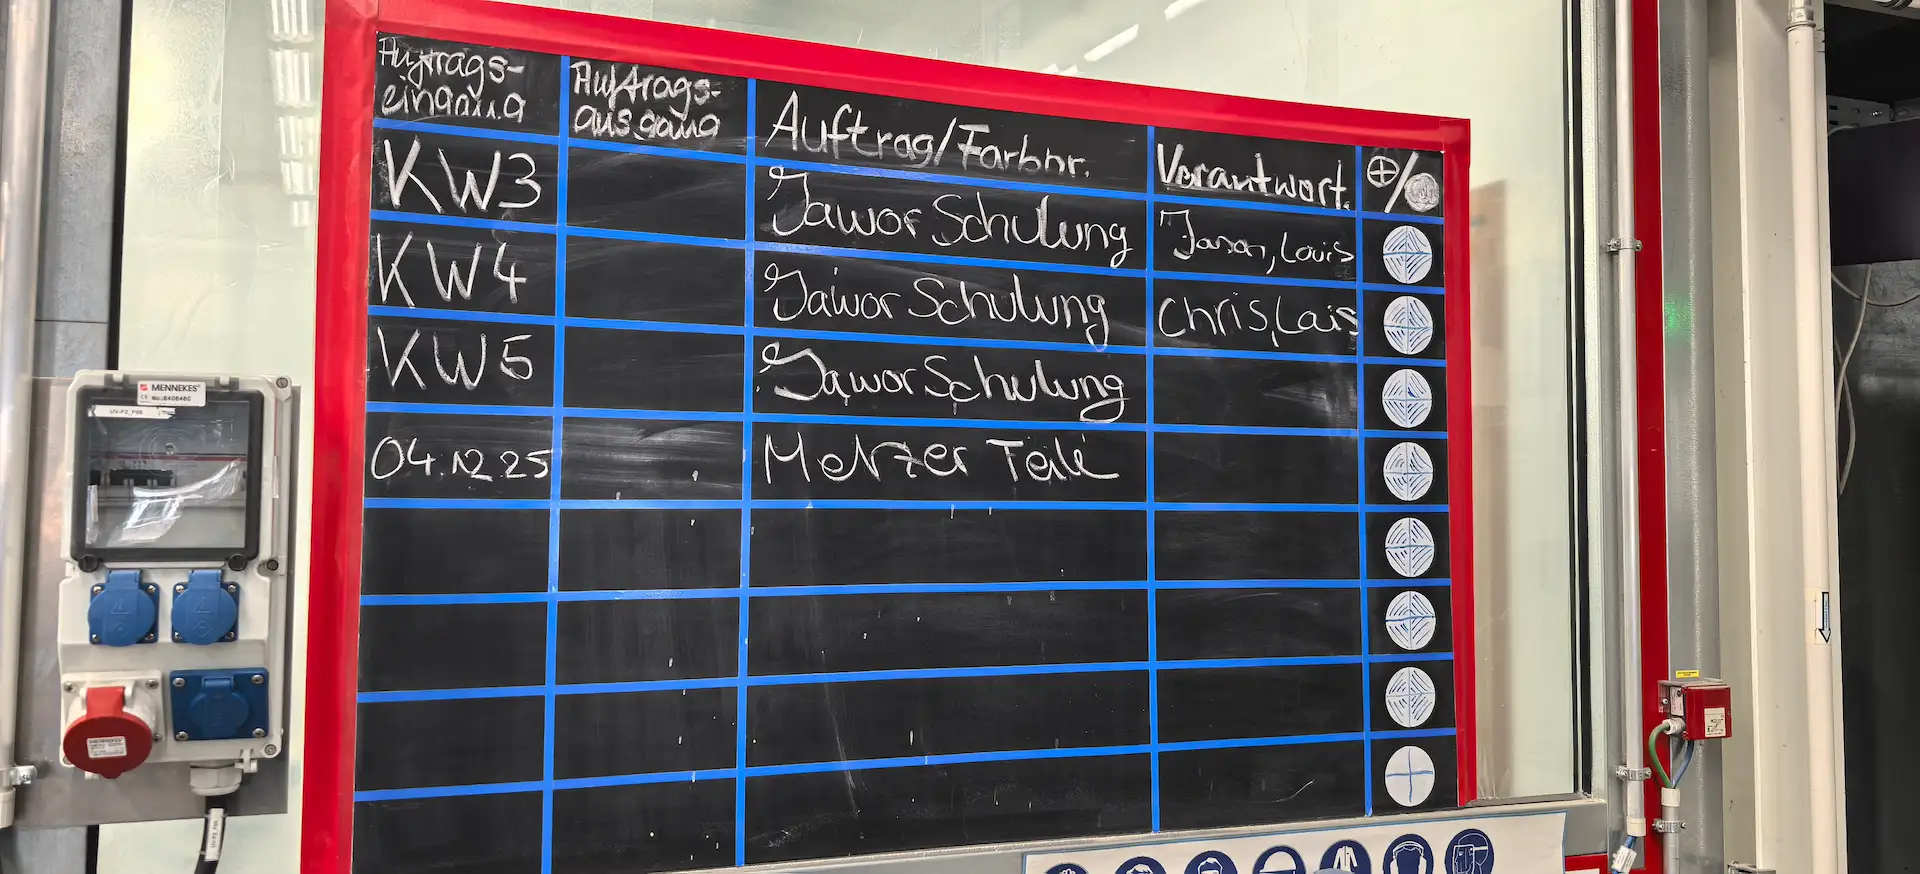 Auftrags-
eingang
Auftrags-
ausgang
Auftrag/Farbnr.
Verantwort.
KW3
Jawor Schulung
Jason, Louis
KW4
Jawor Schulung
Chris, Lais
KW5
Jawor Schulung
04.12.25
Metzer Teile
MENNEKES